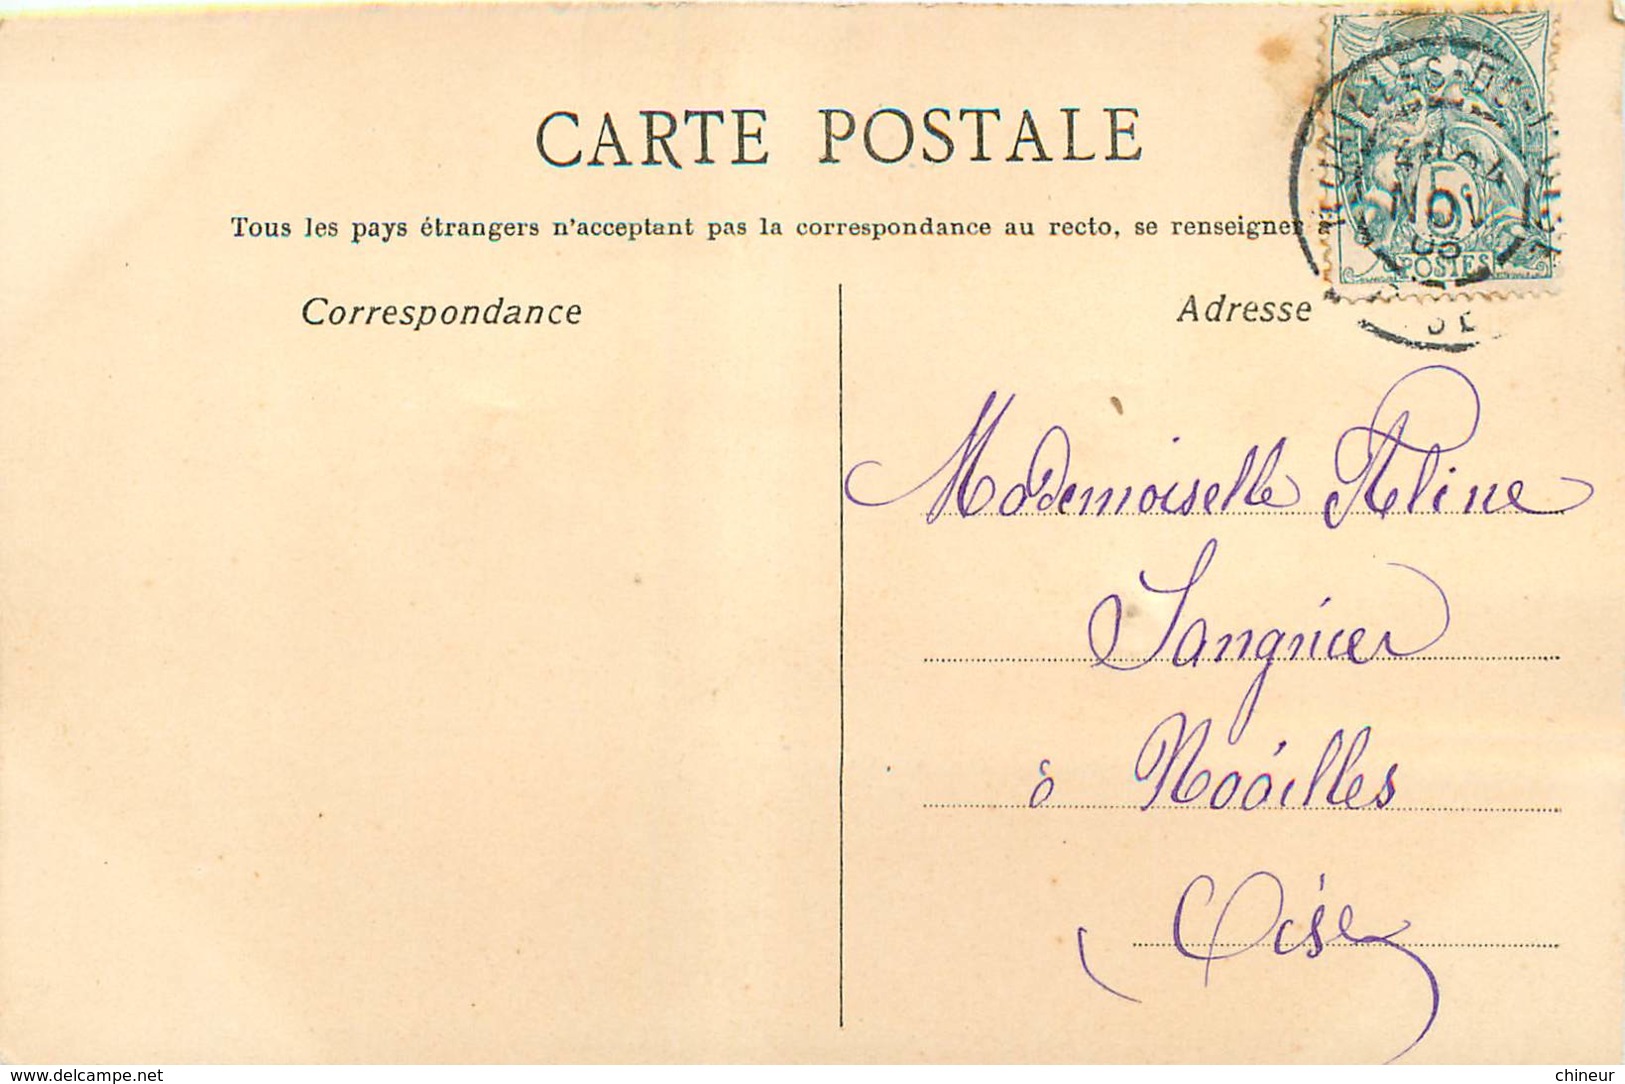 CARTE POSTALE
Tous les pays étrangers n'acceptant pas la correspondance au recto, se renseigner
Correspondance
Adresse
5
NOV
POSTES
Mademoiselle Aline
Sangnier
à Noailles
Oise
delcampe.net
chineur